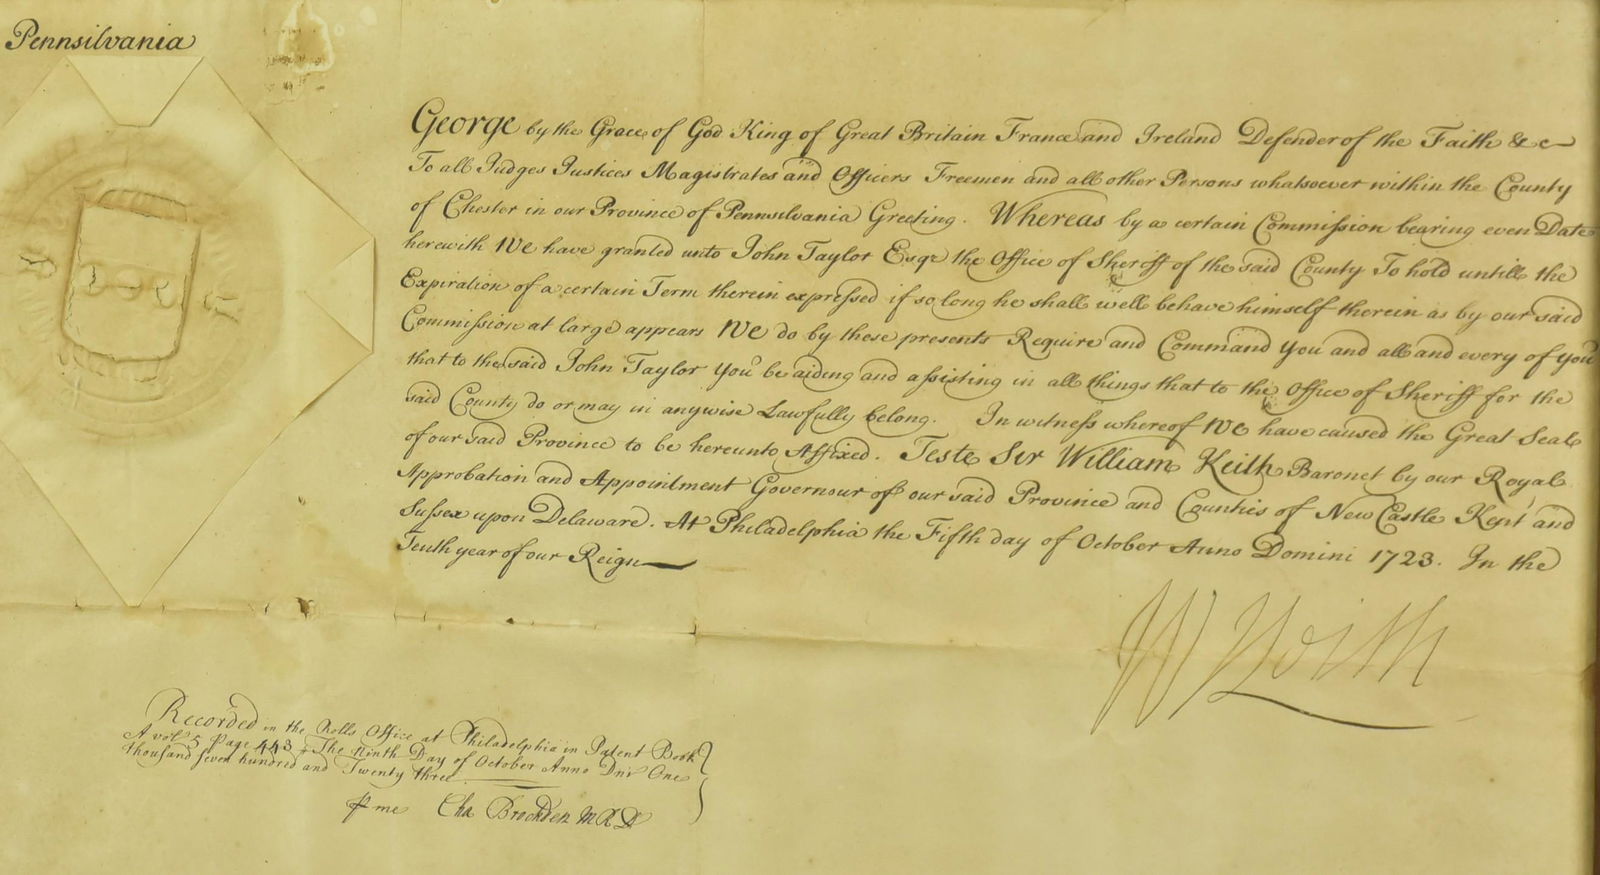 Pennsilvania
George by the Grace of God King of Great Britain France and Ireland Defender of the Faith &c
To all Judges Justices Magistrates and Officers Freemen and all other Persons whatsoever within the County
of Chester in our Province of Pennsilvania Greeting. Whereas by a certain Commission bearing even Date
herewith We have granted unto John Taylor Esqr the Office of Sheriff of the said County To hold untill the
Expiration of a certain Term therein expressed if so long he shall well behave himself therein as by our said
Commission at large appears We do by these presents Require and Command you and all and every of you
that to the said John Taylor you be aiding and assisting in all things that to the Office of Sheriff for the
said County do or may in anywise Lawfully belong. In witness whereof We have caused the Great Seal
of our said Province to be hereunto Affixed. Teste Sir William Keith Baronet by our Royal
Approbation and Appointment Governour of our said Province and Counties of New Castle Kent and
Sussex upon Delaware. At Philadelphia the Fifth day of October Anno Domini 1723. In the
Tenth year of our Reign
W Keith
Recorded in the Rolls Office at Philadelphia in Patent Book
A vol 5 Page 443 The Ninth Day of October Anno Dni One
thousand seven hundred and Twenty three
P me Cha Brockden MRD